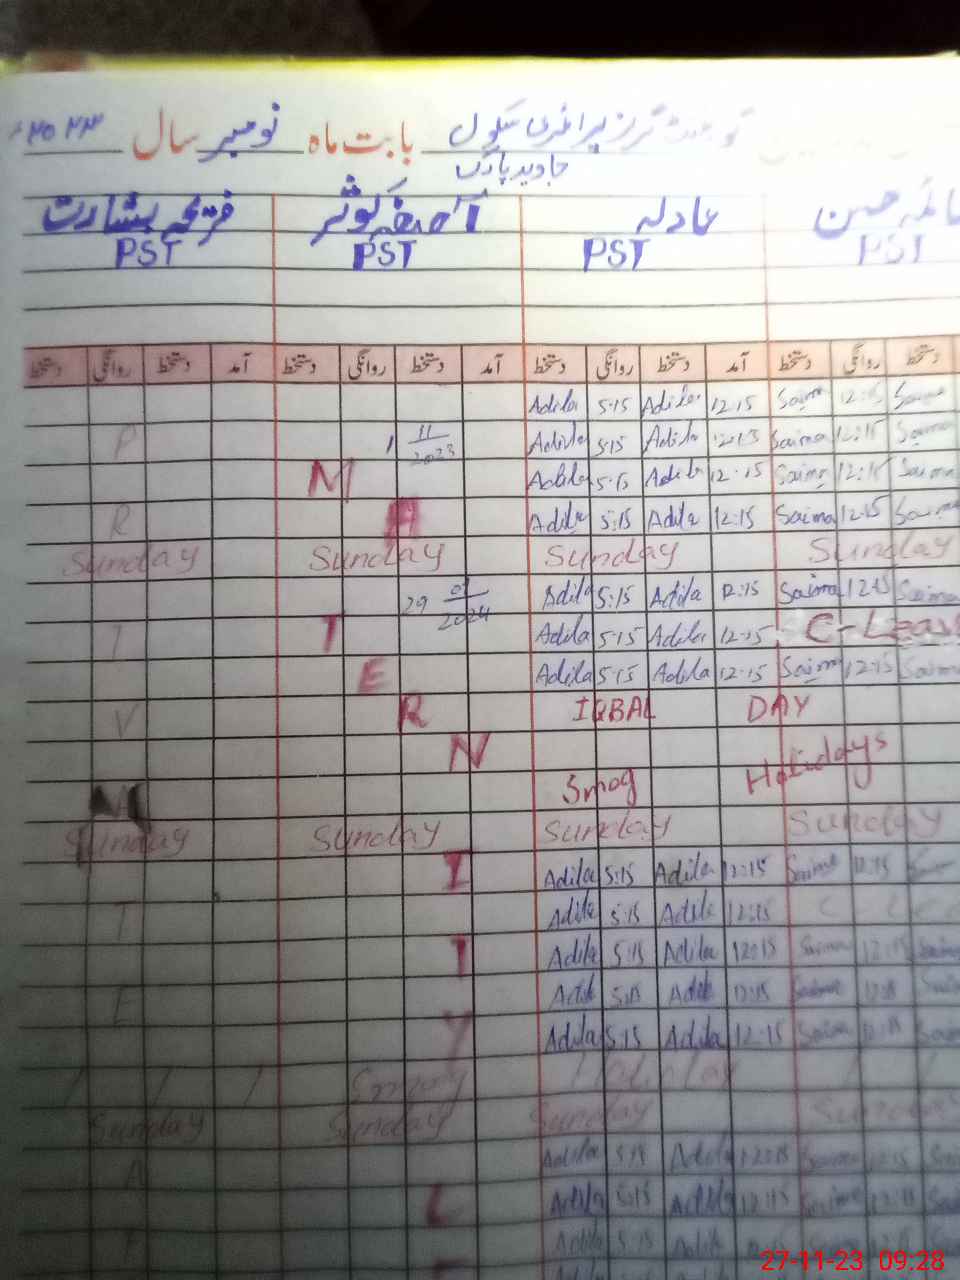 گورنمنٹ گرلز پرائمری سکول بابت ماہ نومبر سال ۲۰۲۳ء
جاوید پارک
صائمہ حسن عادلہ آصفہ کوثر فریحہ بشارت
PST PST PST PST
دستخط روانگی دستخط آمد دستخط روانگی دستخط آمد دستخط روانگی دستخط آمد دستخط روانگی دستخط
Adila 5:15 Adila 12:15 Saima 12:15 Saima
P 1 11/2023 Adila 5:15 Adila Saima 12:15 Saima
M Adila 5:15 Adila 12:15 Saima 12:15 Saima
R A Adila 5:15 Adila 12:15 Saima 12:15 Saima
Sunday Sunday Sunday Sunday
29 01/2024 Adila 5:15 Adila 12:15 Saima 12:15 Saima
I T Adila 5:15 Adila 12:15 C-Leave
E Adila 5:15 Adila 12:15 Saima 12:15 Saima
V R IQBAL DAY
N
Smog Holidays
Sunday Sunday Sunday Sunday
I Adila 5:15 Adila 12:15 Saima 12:15
T Adila 5:15 Adila 12:15
T Adila 5:15 Adila 12:15 Saima 12:15 Saima
E Adila 5:15 Adila 12:15 Saima
Y Adila 5:15 Adila 12:15 Saima Saima
Smog Holiday
Sunday Sunday Sunday Sunday
A Adila 5:15 Adila 12:15 Saima 12:15
L Adila 5:15 Adila 12:15 Saima 12:15
Adila 5:15 Adila
27-11-23 09:28